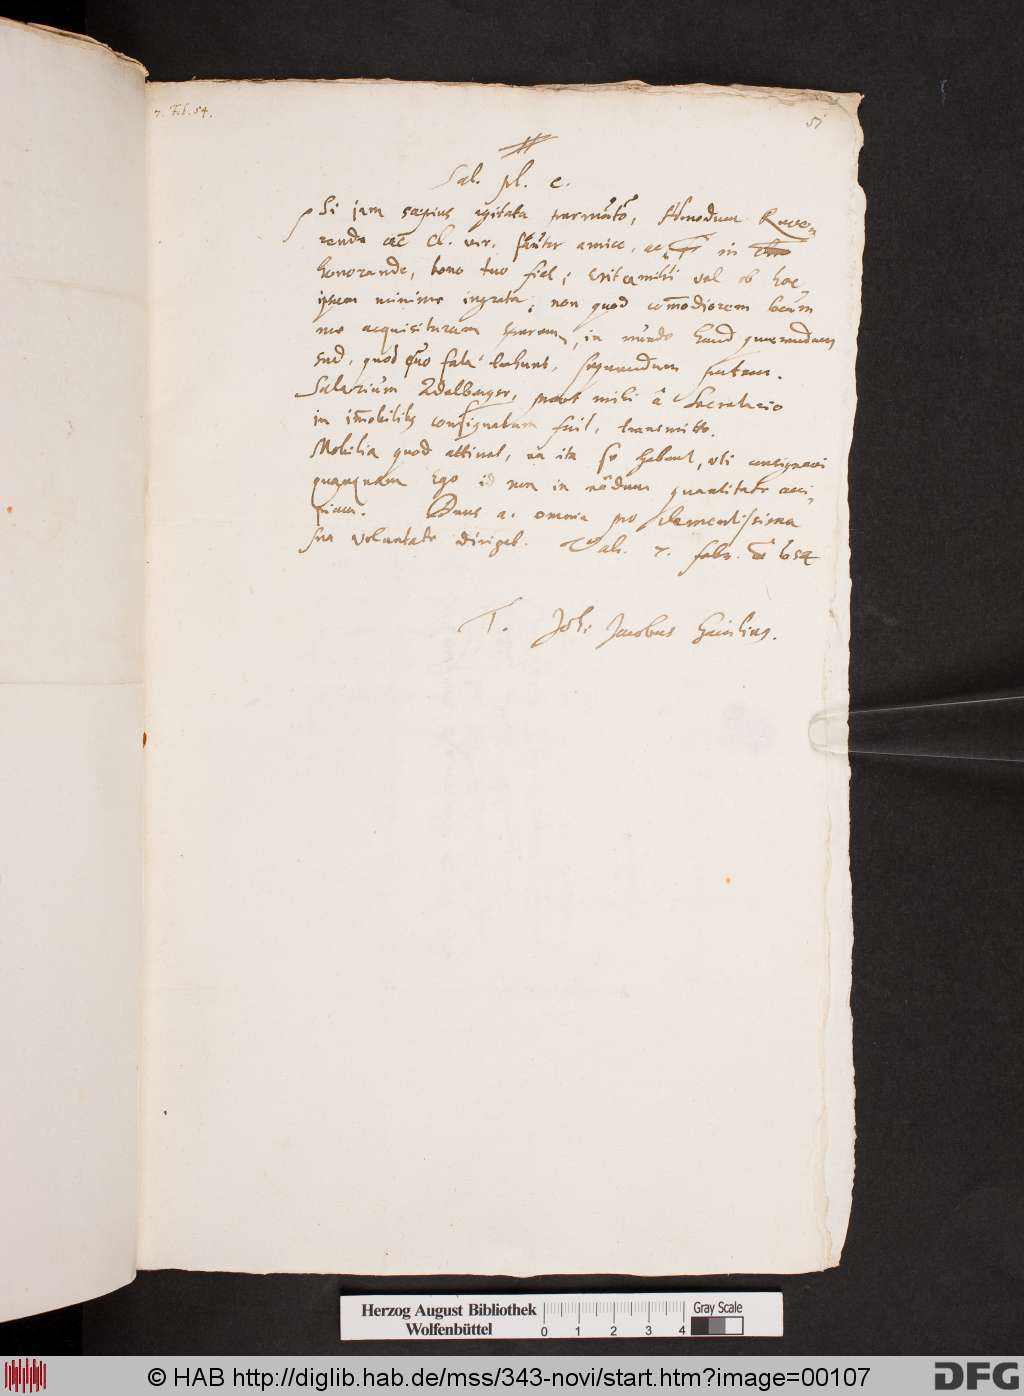 7. Feb. 54.
51
Sal. pl. c.
Si jam sæpius agitata permutatio, Admodum Reve-
rende ac Cl. vir, fautor amice, ac in
honorande, bono tuo fiet; erit ea mihi vel ob hoc
ipsum minime ingrata; non quod com̄odiorem locum
me acquisiturum sperem, in mundo haud quærendum
sed, quod quo fata trahunt, sequendum putem.
Salarium Adelberg., prout mihi â Secretario
in im̄obilibus consignatum fuit, transmitto.
Mobilia quod attinet, ea ita se habent, uti consignavi
quanquam Ego id non in quantitate acci-
piam. Deus a. omnia pro clementissima
sua voluntate diriget. Vale. 7. febr. a 654
T. Joh: Jacobus
Herzog August Bibliothek
Wolfenbüttel
0 1 2 3 4
Gray Scale
© HAB http://diglib.hab.de/mss/343-novi/start.htm?image=00107
DFG